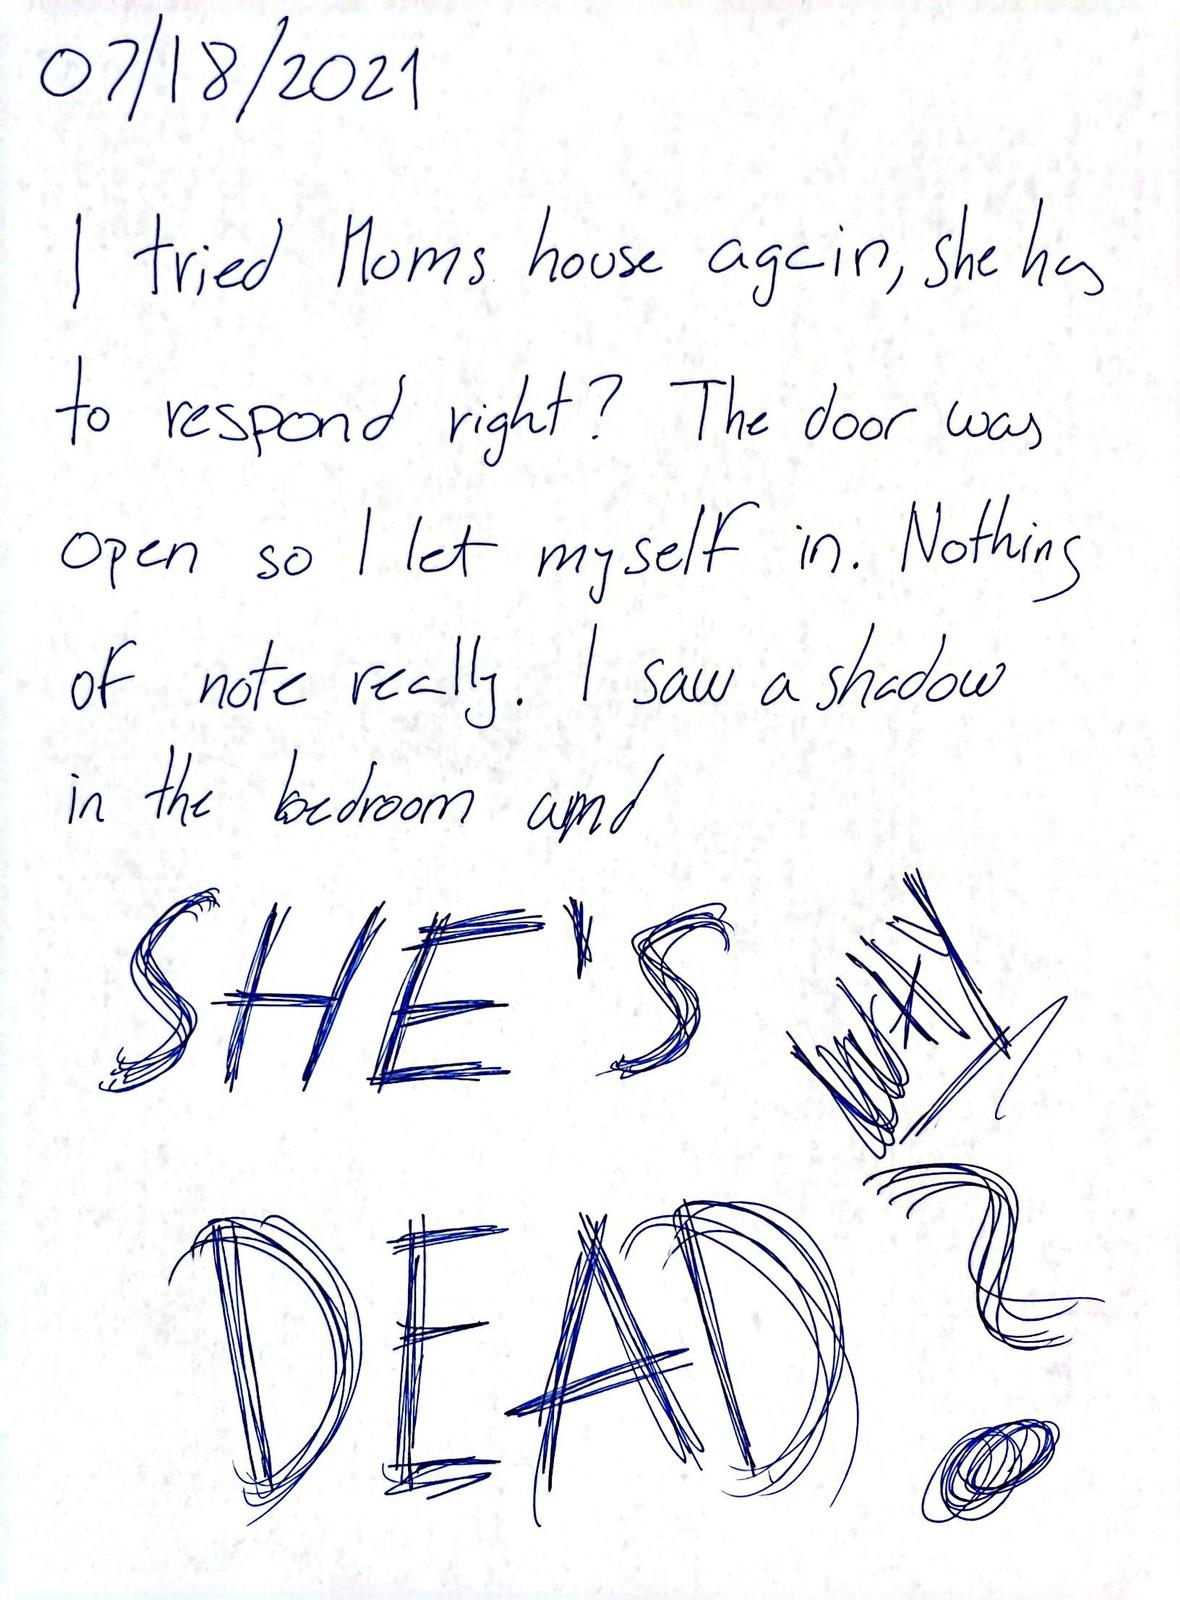 07/18/2021
I tried Moms house again, she has
to respond right? The door was
open so I let myself in. Nothing
of note really. I saw a shadow
in the bedroom and
SHE'S
WHY
DEAD
?